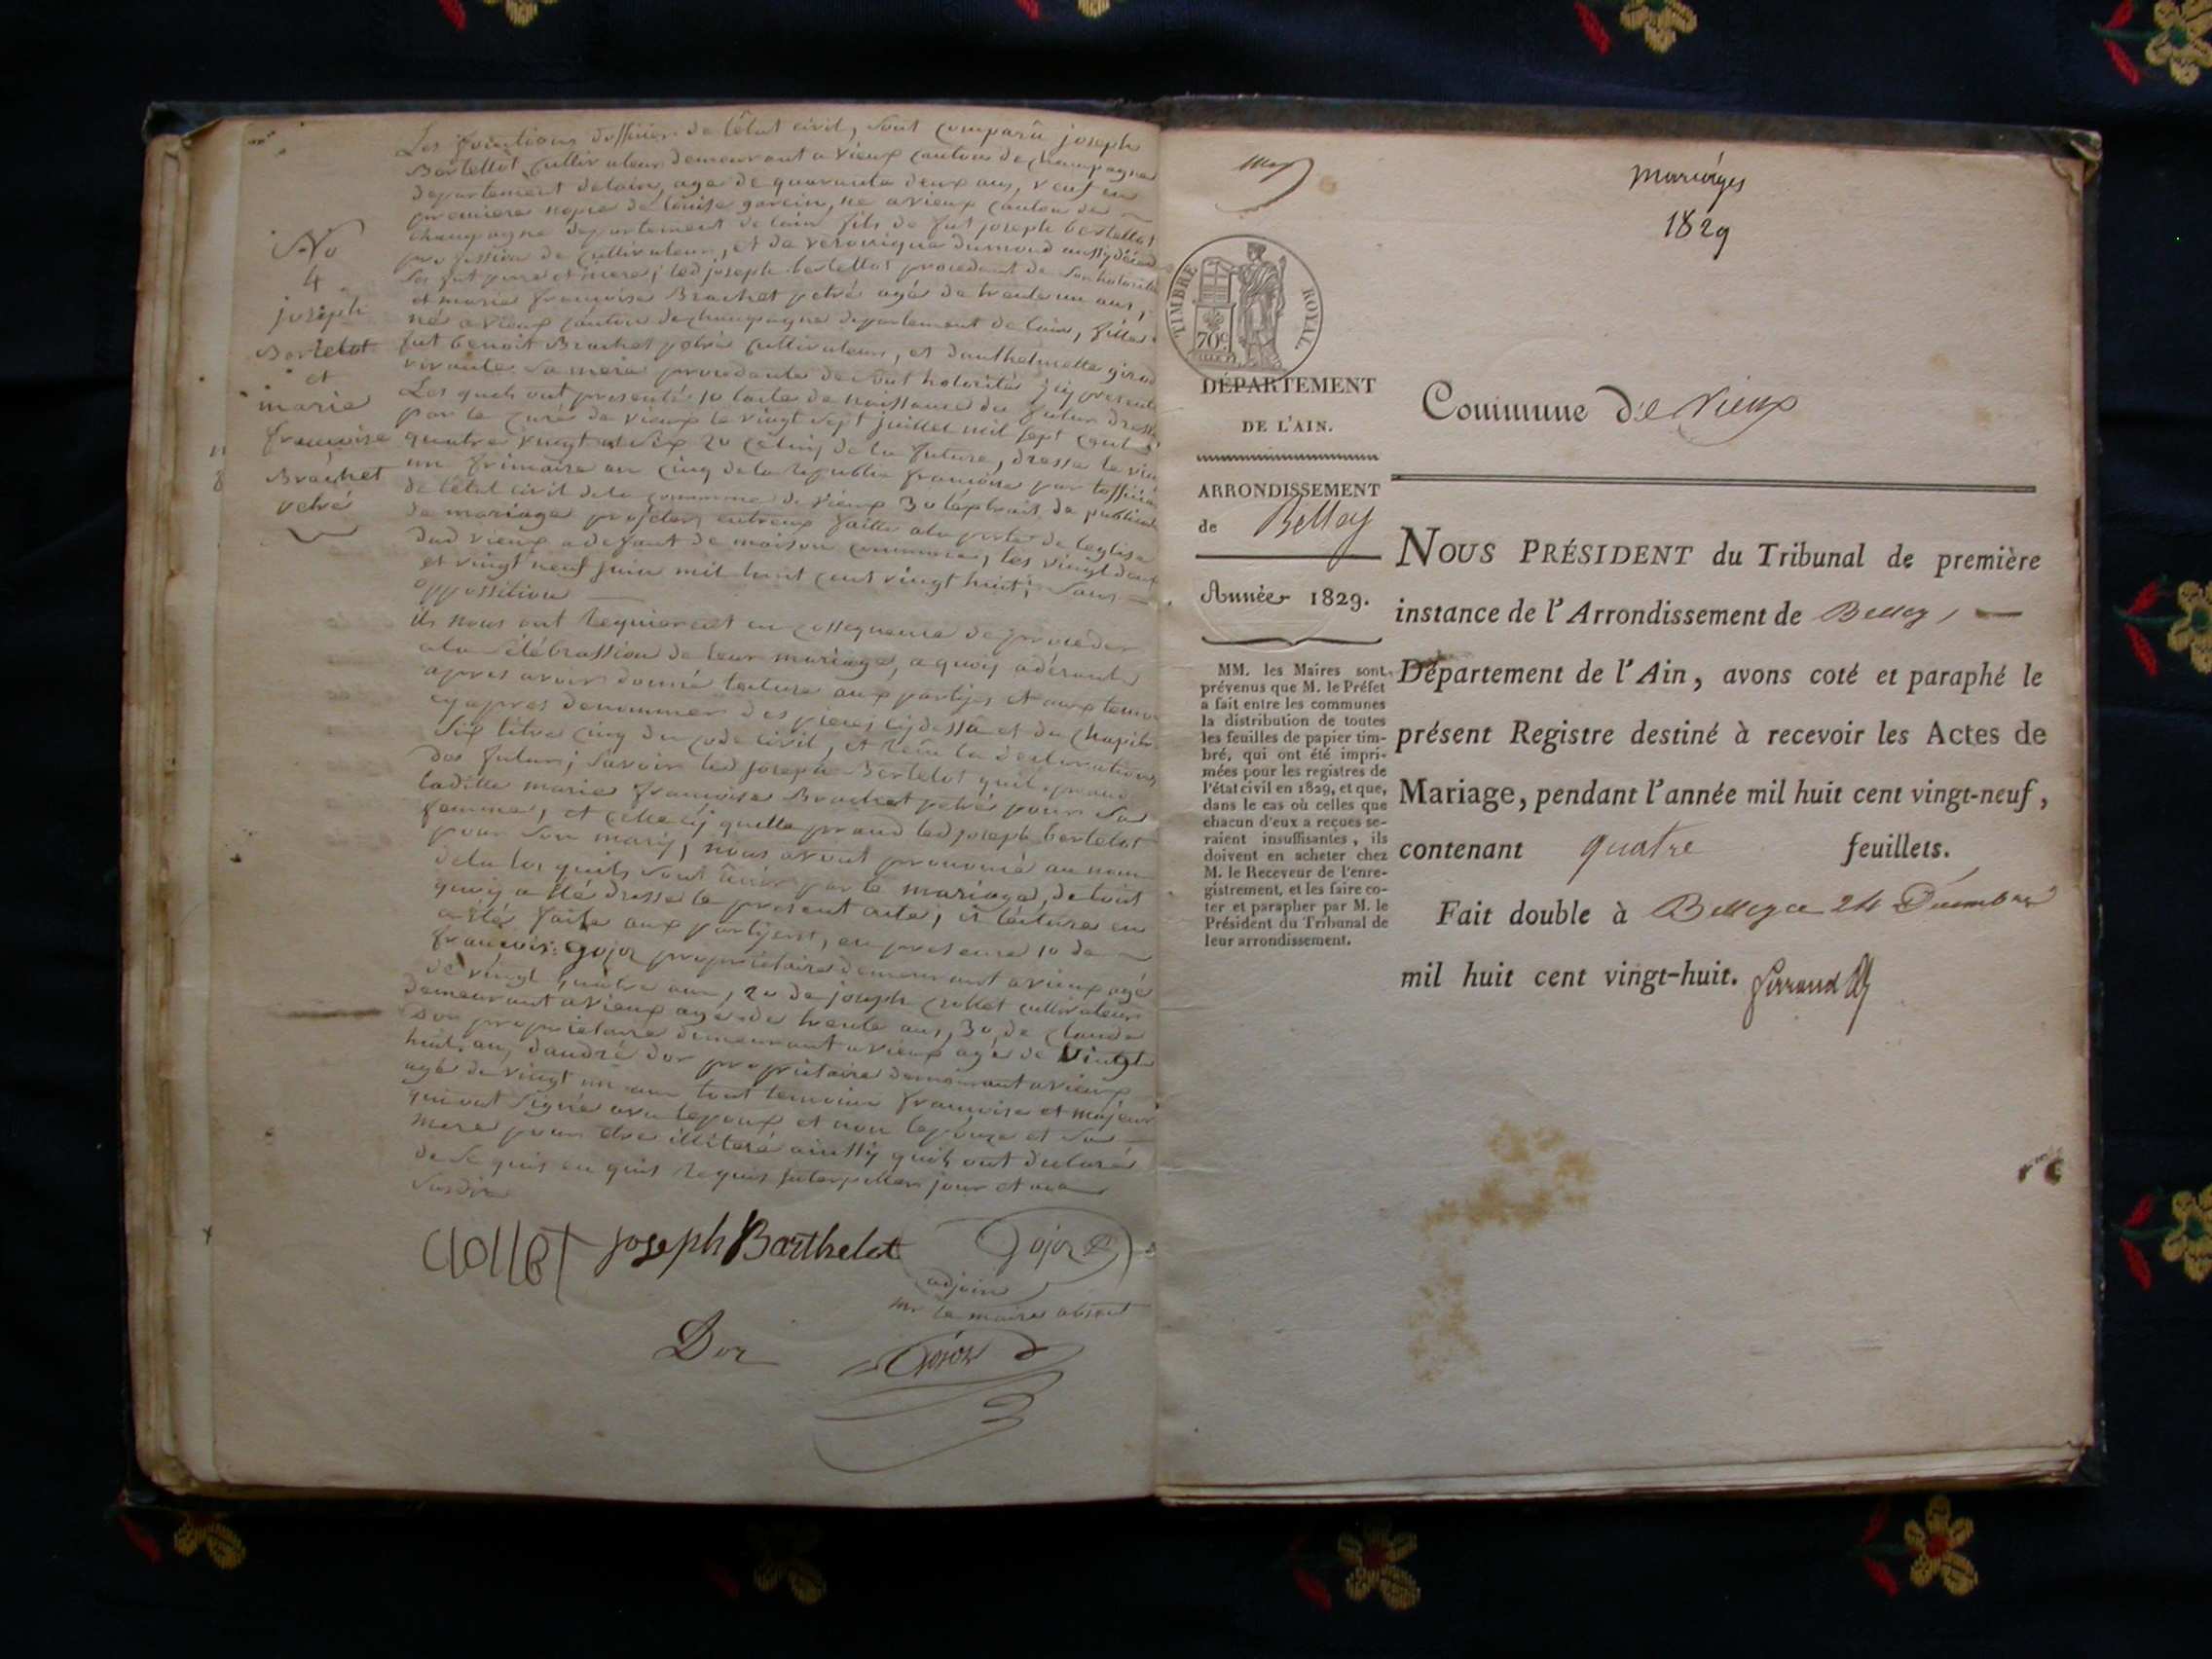 Les fonctions dofficier de létat civil, sont comparû joseph
Bertellot cultivateur demeurant a vieux canton de champagne
departement delain, age de quarante deux ans, veuf en
premiere nopce de louise garcin, né a vieux canton de
champagne departement de lain fils de fut joseph bertellot
profession de cultivateur, et de veronique dumond aussy
ses fut pere et mere; led joseph bertellot procedent de son hotorité
et marie francoise Brachet petré agé de trente un ans,
né a vieux canton de champagne departement de lain, fille
fut benoit Brachet petré cultivateur, et danthelmette girod
vivante sa mere procedante de son hotorité jcy presente
Les quels ont presenté 1o lacte de naissance du futur dressé
par le curé de vieux le vingt sept juillet mil sept cent
quatre vingt six 2o celuy de la future, dressé le vin
un frimaire an cinq de la republic francoise par lofficier
de létat civil de la commune de vieux 3o lextrait de publication
de mariage projeter entreux faitte a la porte de leglise
dud vieux a defaut de maison commune, les vingt deux
et vingt neuf juin mil huit cent vingt huit; sans
oppossition
ils nous ont requierent en conssequence de proceder
a la célébrassion de leur mariage, a quoy adérant
apres avoir donné lecture aux partijes et aux temoins
cy apres denommer des pieces cy dessû et du chapitre
six titre cinq du code civil, et recu la declaration
des futur; savoir led joseph Bertelot quil prend
laditte marie francoise Brachet petré pour sa
femme, et celle cy quelle prend led joseph bertelot
pour son mary, nous avont prononcé au nom
de la loi quils sont unis par le mariage, de tout
quoy a été dressé le present acte; et lecture en
a été faite aux partijes, en presence 1o de
francois Gojoz propriétaire demeurant a vieux agé
de vingt quatre ans, 2o de joseph Crollet cultivateur
demeurant a vieux agé de trente ans, 3o, de claude
Dor propriétaire demeurant a vieux agé de vingt
huit an, dandré dor propriétaire demeurant a vieux
agé de vingt un ans tout temoins francoise et majeur
qui ont signé avec lepoux et non lepouze et sa
mere pour etre illiteré ainssy quils ont declaré
de ce quis en quis requis jnterpeller jour et an
susdit
No
4
joseph
Bertelot
et
marie
francoise
Brachet
petré
joseph Barthelot
Gojoz
adjoint
mr le maire absent
Dor
Mariages
1829
TIMBRE ROYAL
70c
DÉPARTEMENT
DE L'AIN.
ARRONDISSEMENT
de Belley
Année 1829.
MM. les Maires sont
prévenus que M. le Préfet
a fait entre les communes
la distribution de toutes
les feuilles de papier tim-
bré, qui ont été impri-
mées pour les registres de
l'état civil en 1829, et que,
dans le cas où celles que
chacun d'eux a reçues se-
raient insuffisantes, ils
doivent en acheter chez
M. le Receveur de l'enre-
gistrement, et les faire co-
ter et parapher par M. le
Président du Tribunal de
leur arrondissement.
Commune de Vieux
NOUS PRÉSIDENT du Tribunal de première
instance de l'Arrondissement de Belley,
Département de l'Ain, avons coté et paraphé le
présent Registre destiné à recevoir les Actes de
Mariage, pendant l'année mil huit cent vingt-neuf,
contenant quatre feuillets.
Fait double à Belley ce 24 Décembre
mil huit cent vingt-huit. Ferrand